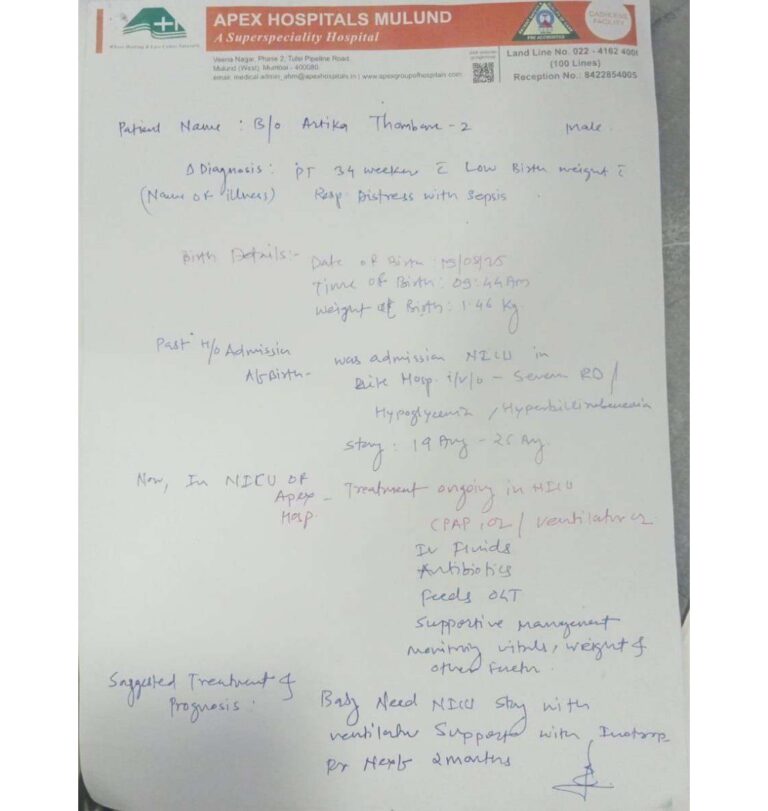 APEX HOSPITALS MULUND
A Superspeciality Hospital
Veena Nagar, Phase 2, Tulsi Pipeline Road,
Mulund (West), Mumbai - 400080.
email: medical.admin_ahm@apexhospitals.in | www.apexgroupofhospitals.com
CASHLESS
FACILITY
Land Line No. 022 - 4162 4000
(100 Lines)
Reception No.: 8422854005
Patient Name : B/o Artika Thombare - 2 Male.
Δ Diagnosis : PT 34 weeker c̄ Low Birth weight c̄
(Name of illness) Resp Distress with Sepsis
Birth Details:-
Date of Birth : 19/08/25
Time of Birth : 09:44 Am
Weight of Birth : 1.46 Kg
Past H/o Admission was admission NICU in
Af Birth - Hosp. i/v/o - Severe RD /
Hypoglycemia / Hyperbillirubenemia
Stay : 19 Aug - 26 Aug.
Now, In NICU OF Apex Hosp. - Treatment ongoing in NICU
CPAP, O2 / Ventilator
Iv Fluids
Antibiotics
Feeds OGT
Supportive Management
Monitoring vitals, weight &
other
Suggested Treatment &
Prognosis :
Baby Need NICU Stay with
ventilator Support with
for Next 2 months